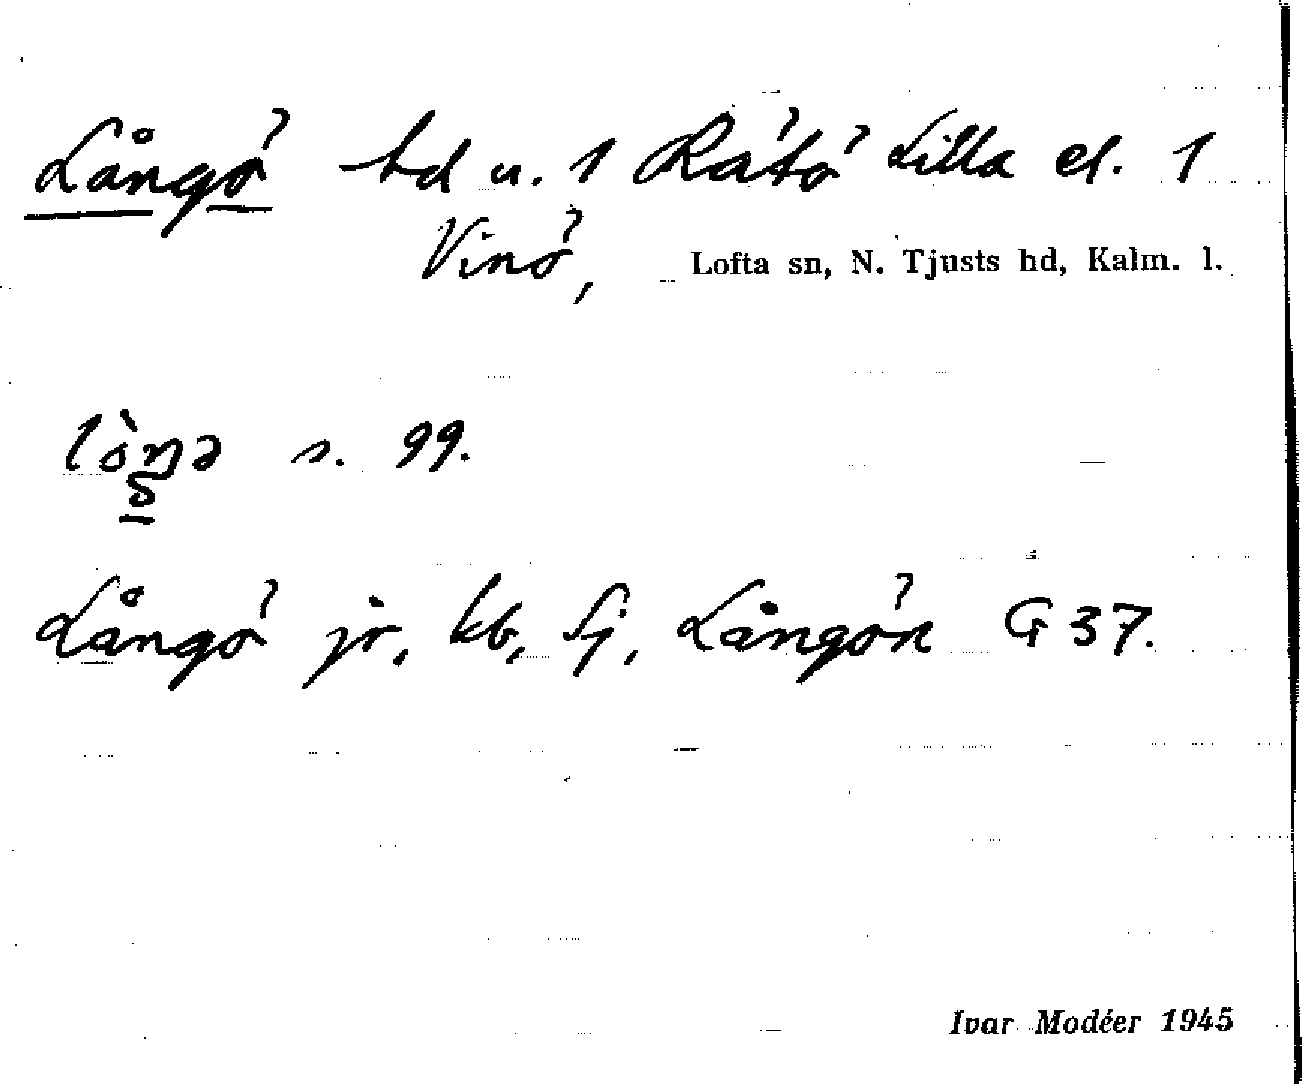 Långö td u. 1 Råtö Lilla el. 1
Vinö, Lofta sn, N. Tjusts hd, Kalm. l.
s. 99.
Långö jr, kb, Sj, Långön G 37.
Ivar Modéer 1945